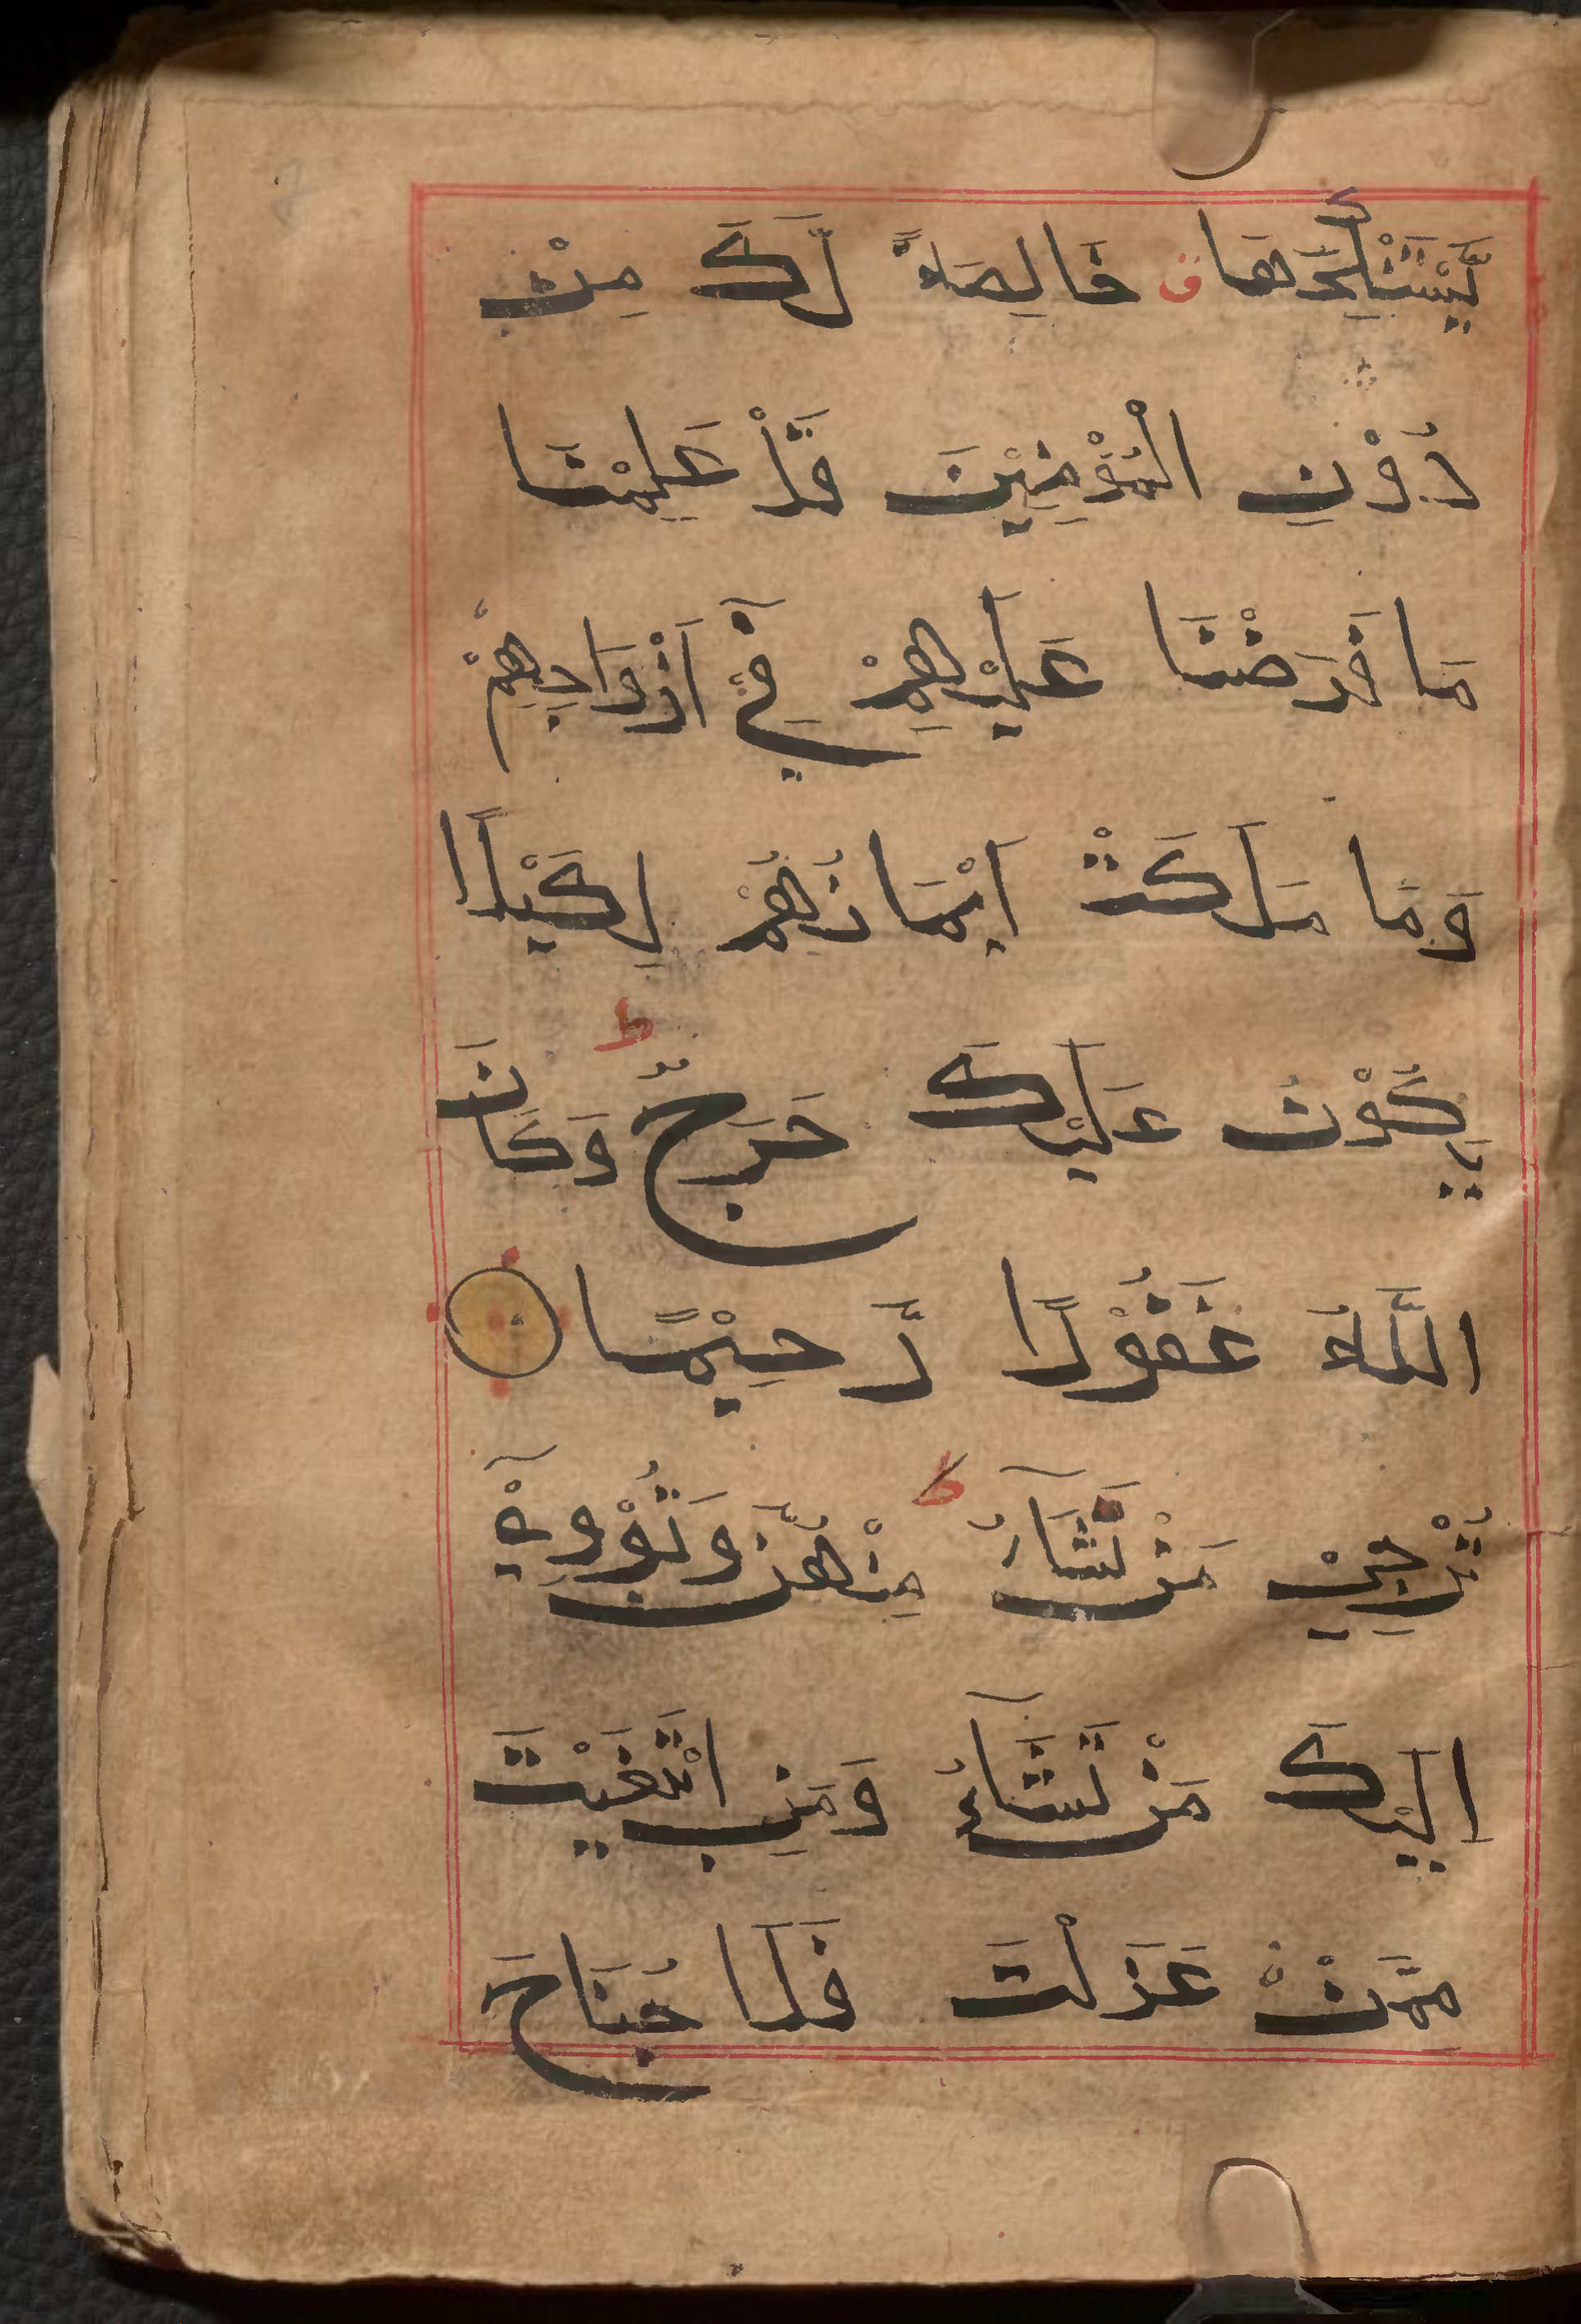 يَّسْتَنْكِحَهَا ق خَالِصَةً لَّكَ مِنْ
دُوْنِ الْمُؤْمِنِيْنَ قَدْ عَلِمْنَا
مَا فَرَضْنَا عَلَيْهِمْ فِيْٓ اَزْوَاجِهِمْ
وَمَا مَلَكَتْ اَيْمَانُهُمْ لِكَيْلَا
يَكُوْنَ عَلَيْكَ حَرَجٌ ط وَكَانَ
اللَّهُ غَفُوْرًا رَّحِيْمًا
تُرْجِيْ مَنْ تَشَآءُ مِنْهُنَّ وَتُؤْوِيْٓ ط
اِلَيْكَ مَنْ تَشَآءُ وَمَنِ ابْتَغَيْتَ
مِمَّنْ عَزَلْتَ فَلَا جُنَاحَ